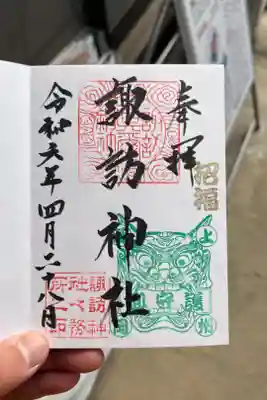 奉拝
招福
諏訪神社
令和六年四月二十八日
諏訪神
社々務
所之印
上
州
守護